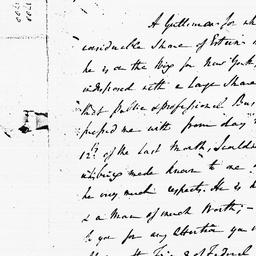 A Gentleman for wh
considerable Share of Esteem
he is on the Wing for New York,
indisposed with a Large Share
that Public & Professional Bus
me with from day
12th of the Last Month, 
made known to me
he very much respects. He is
& a Man of much Worth; —
to you for any attention you